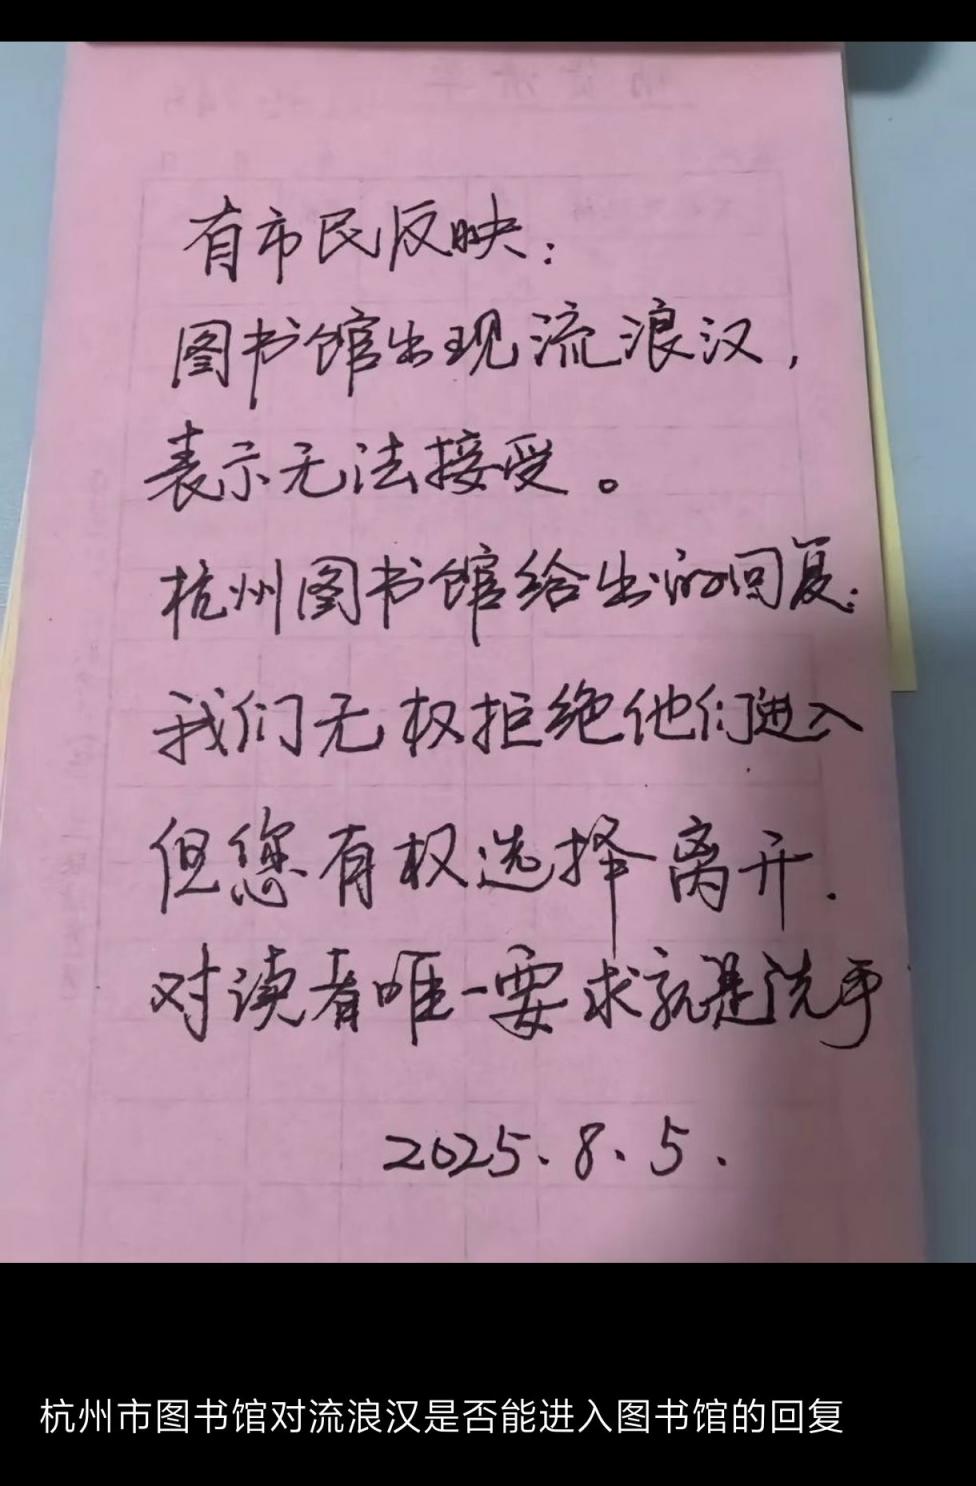 有市民反映：
图书馆出现流浪汉，
表示无法接受。
杭州图书馆给出的回复：
我们无权拒绝他们进入
但您有权选择离开.
对读者唯一要求就是洗手
2025.8.5.
杭州市图书馆对流浪汉是否能进入图书馆的回复